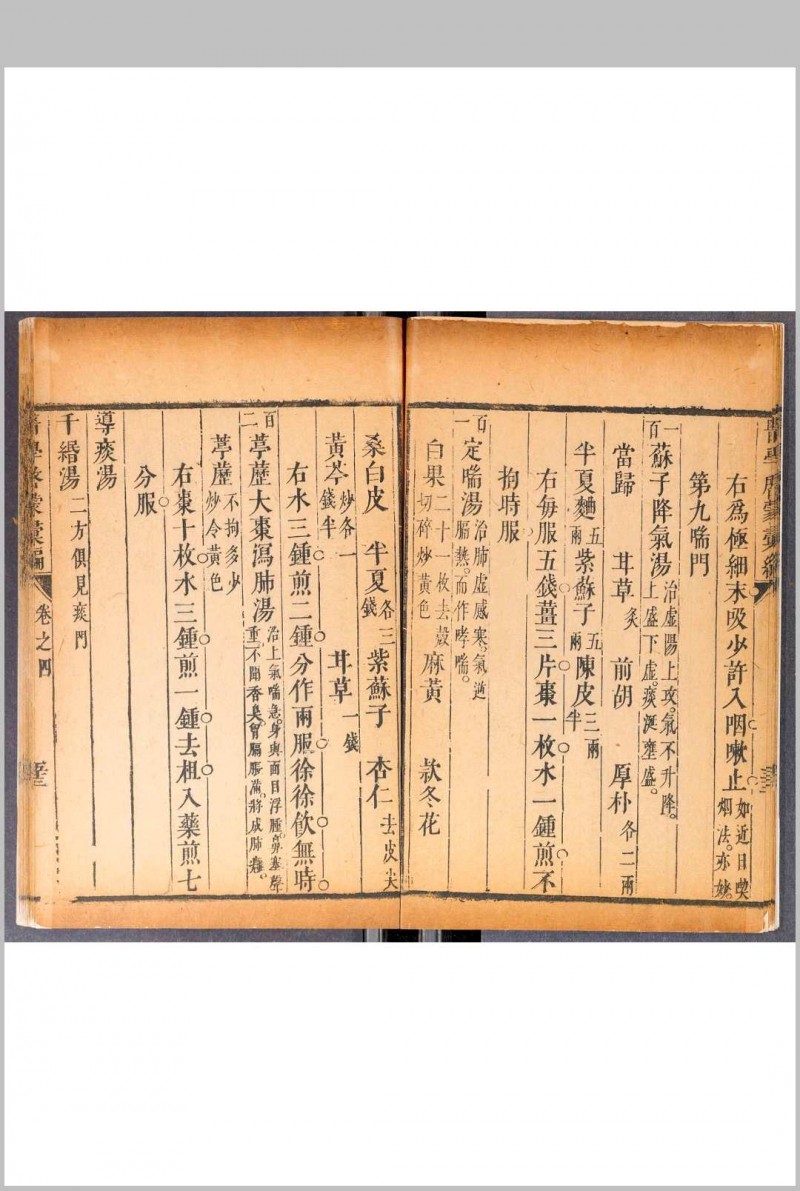 右為極細末吸少許入咽嗽止如近日喫烟法亦妙
第九喘門
一百 蘇子降氣湯 治虛陽上攻。氣不升降。上盛下虛。痰涎壅盛。
當歸 甘草炙 前胡 厚朴各二兩
半夏麯五兩 紫蘇子五兩 陳皮三兩半
右每服五錢薑三片棗一枚水一鍾煎不
拘時服
百一 定喘湯 治肺虛感寒。氣逆膈熱。而作哮喘。
白果二十一枚去殼切碎炒黃色 麻黃 款冬花
桑白皮 半夏各三錢 紫蘇子 杏仁去皮尖
黃芩炒各一錢半 甘草一錢
右水三鍾煎二鍾分作兩服徐徐飲無時
百二 葶藶大棗瀉肺湯 治上氣喘急。身與面目浮腫。鼻塞聲重。不聞香臭。胸膈脹滿。將成肺癰。
葶藶不拘多少炒令黃色
右棗十枚水三鍾煎一鍾去柤入藥煎七
分服
導痰湯
千緡湯二方俱見痰門
卷之四